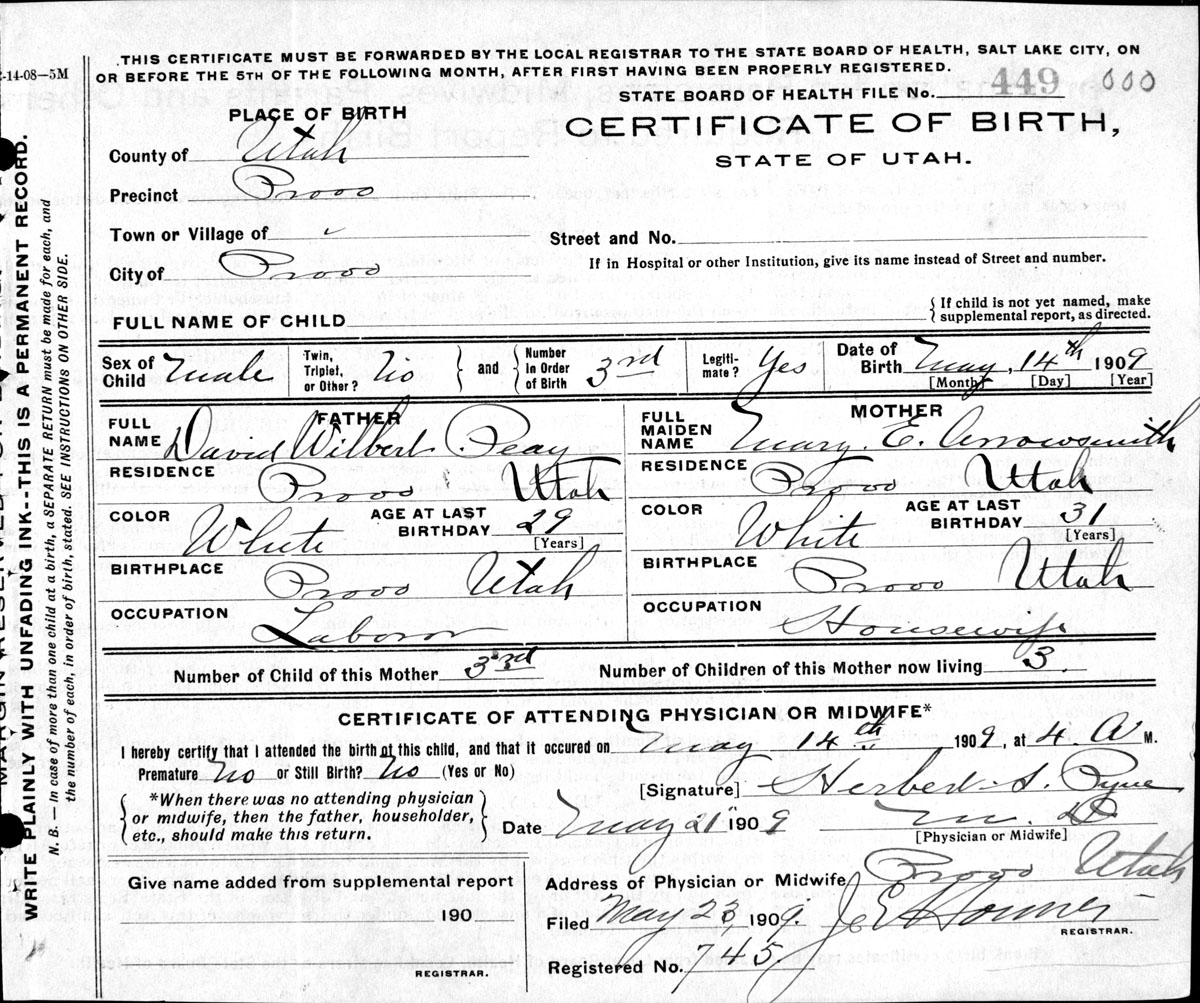 2-14-08—5M
.THIS CERTIFICATE MUST BE FORWARDED BY THE LOCAL REGISTRAR TO THE STATE BOARD OF HEALTH, SALT LAKE CITY, ON
OR BEFORE THE 5TH OF THE FOLLOWING MONTH, AFTER FIRST HAVING BEEN PROPERLY REGISTERED.
STATE BOARD OF HEALTH FILE No. 449 000
PLACE OF BIRTH
CERTIFICATE OF BIRTH,
STATE OF UTAH.
County of Utah
Precinct Provo
Town or Village of
Street and No.
City of Provo
If in Hospital or other Institution, give its name instead of Street and number.
FULL NAME OF CHILD
{ If child is not yet named, make
supplemental report, as directed.
Sex of Child Male
Twin, Triplet, or Other? No
} and {
Number in Order of Birth 3rd
Legiti- mate? Yes
Date of Birth May, 14th 1909
[Month] [Day] [Year]
FATHER
FULL NAME David Wilbert Peay
MOTHER
FULL MAIDEN NAME Mary E. Arrowsmith
RESIDENCE Provo Utah
RESIDENCE Provo Utah
COLOR White AGE AT LAST BIRTHDAY 29 [Years]
COLOR White AGE AT LAST BIRTHDAY 31 [Years]
BIRTHPLACE Provo Utah
BIRTHPLACE Provo Utah
OCCUPATION Laborer
OCCUPATION Housewife
Number of Child of this Mother 3rd
Number of Children of this Mother now living 3.
CERTIFICATE OF ATTENDING PHYSICIAN OR MIDWIFE*
I hereby certify that I attended the birth of this child, and that it occured on May 14th 1909, at 4 A M.
Premature No or Still Birth? No (Yes or No)
[Signature] Herbert S. Pyne
{ *When there was no attending physician
or midwife, then the father, householder,
etc., should make this return. }
Date May 21" 1909
M. D.
[Physician or Midwife]
Give name added from supplemental report
190
REGISTRAR.
Address of Physician or Midwife Provo Utah
Filed May 23, 1909.
REGISTRAR.
Registered No. 745
WRITE PLAINLY WITH UNFADING INK--THIS IS A PERMANENT RECORD.
N. B. — In case of more than one child at a birth, a SEPARATE RETURN must be made for each, and
the number of each, in order of birth, stated. SEE INSTRUCTIONS ON OTHER SIDE.